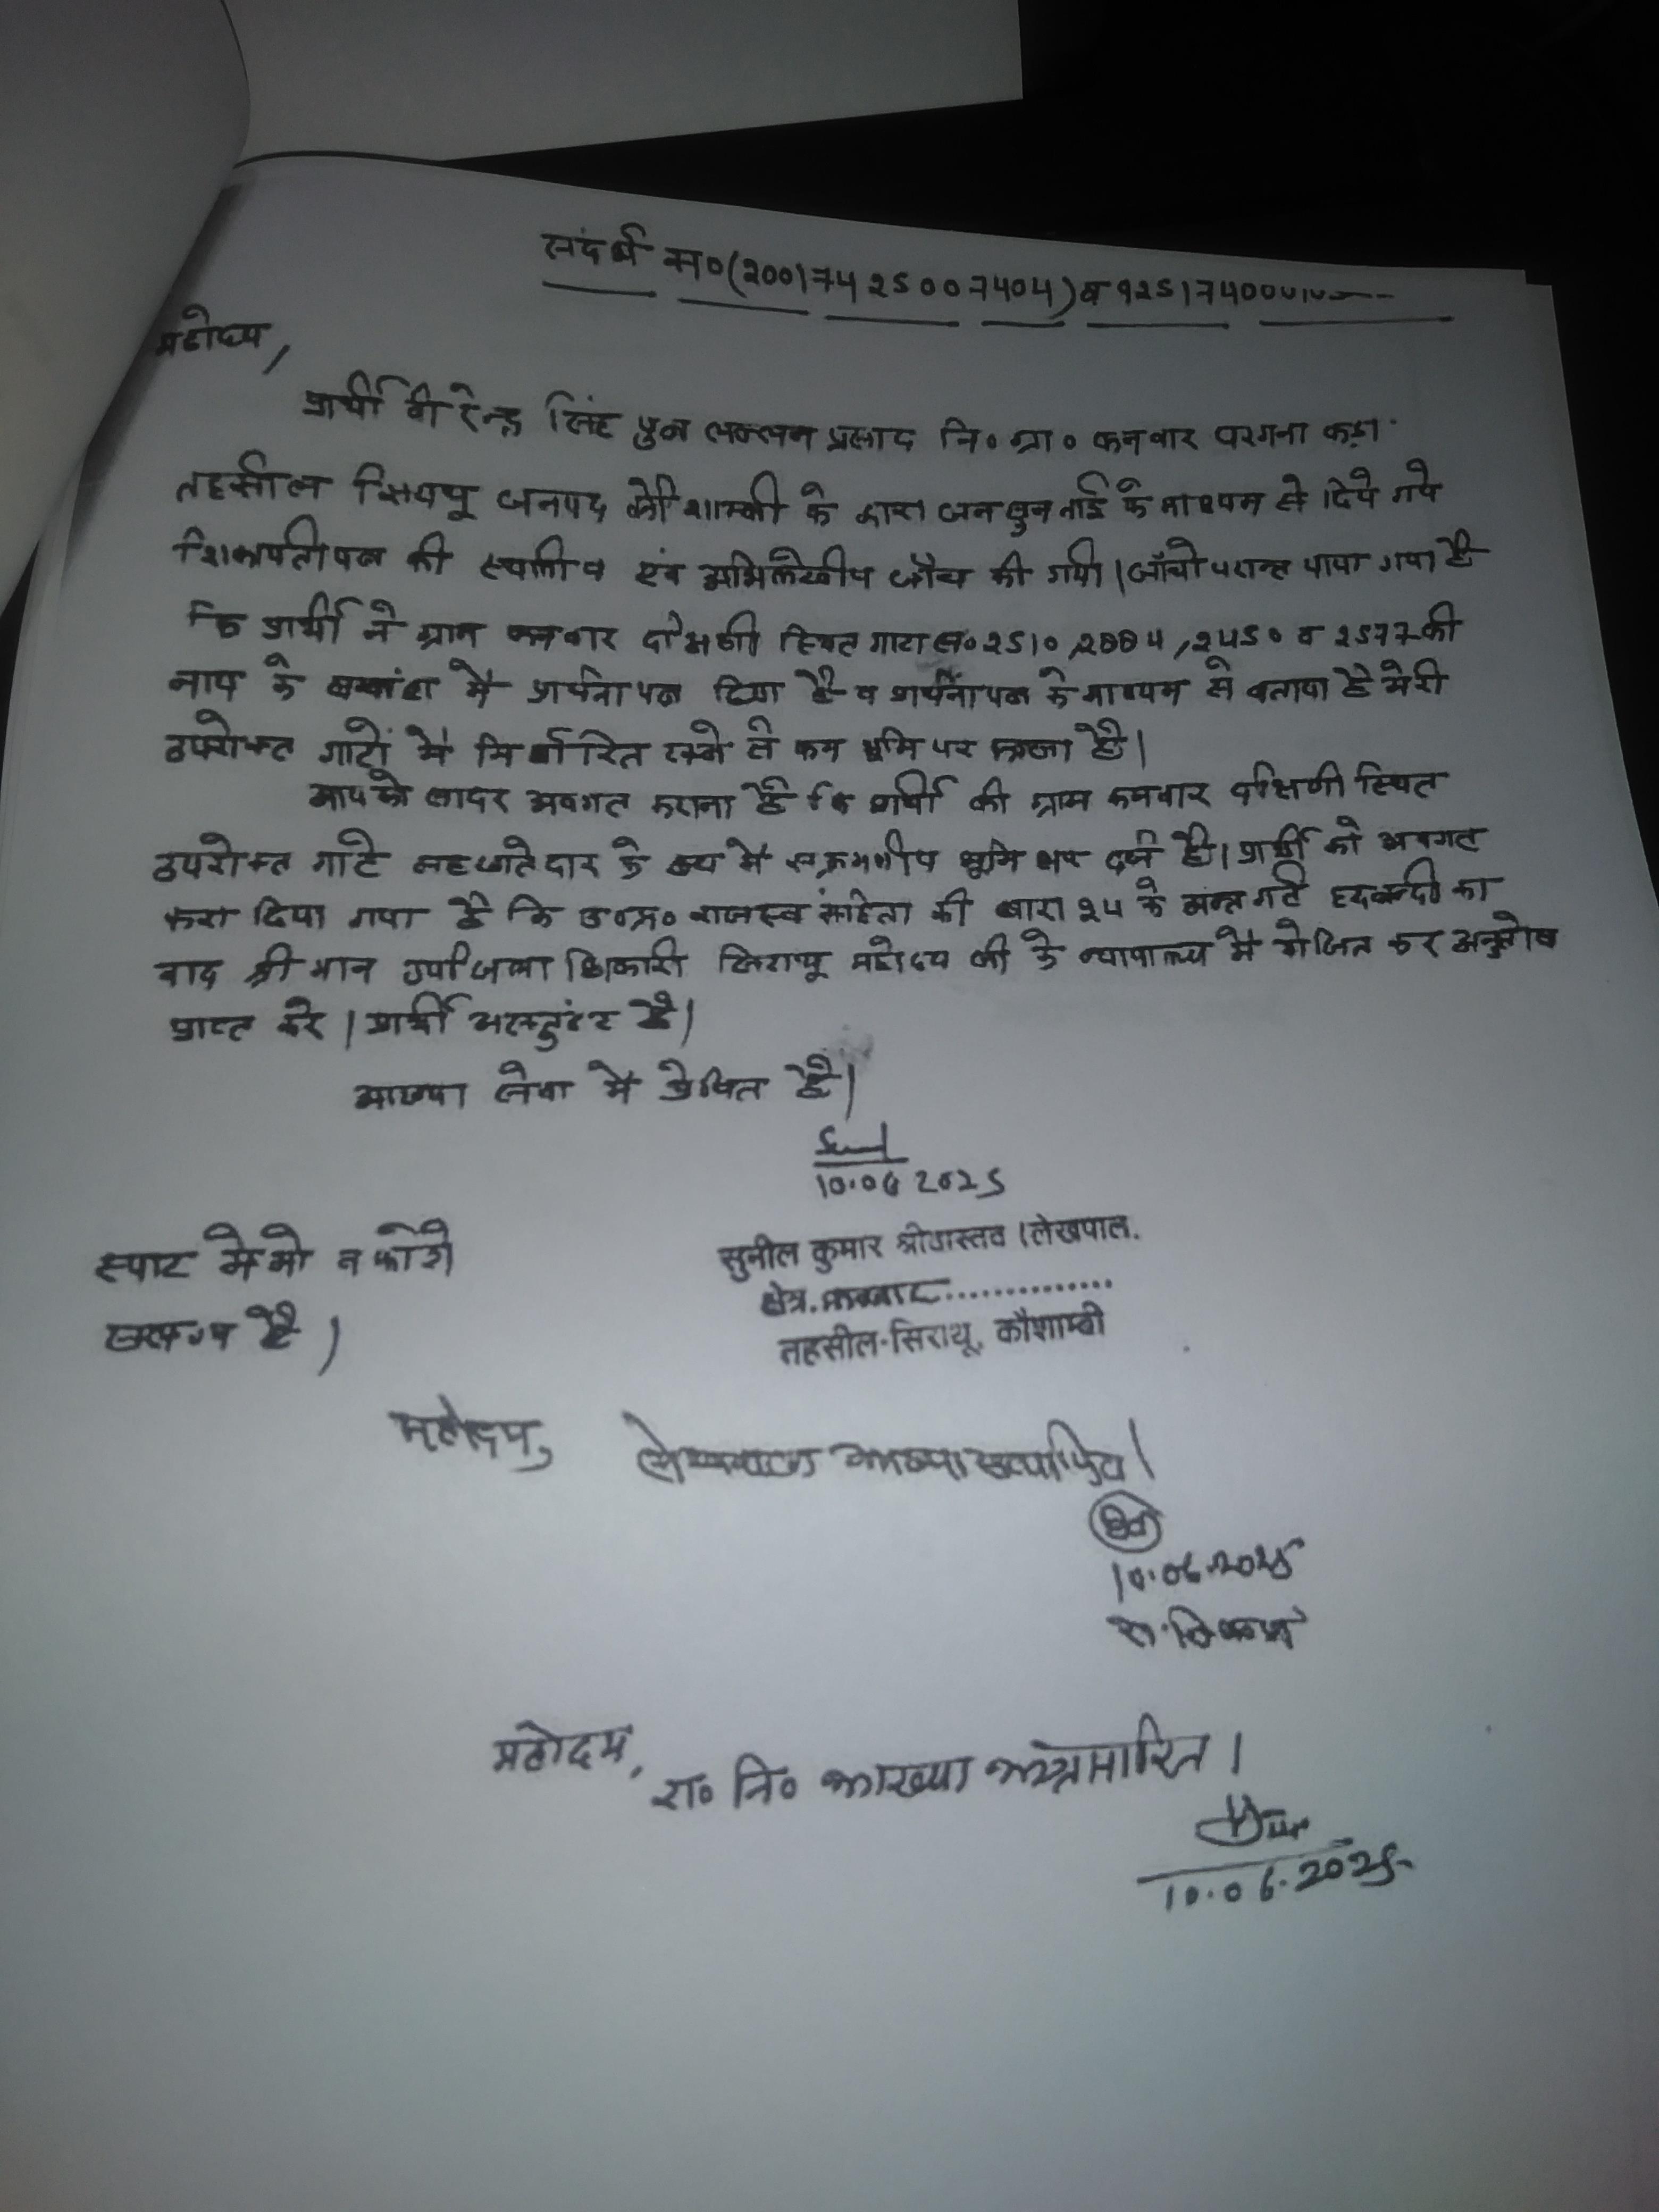 संदर्भ स०(20017425007404) व
महोदय,
प्रार्थी वीरेन्द्र सिंह पुत्र लल्लन प्रसाद नि० ग्रा० कनवार परगना कड़ा
तहसील सिराथू जनपद कौशाम्बी के द्वारा जनसुनवाई के माध्यम से दिये गये
शिकायतीपत्र की स्थलीय एंव अभिलेखीय जाँच की गयी। जाँचोपरान्त पाया गया है
कि प्रार्थी ने ग्राम कनवार दक्षिणी स्थित गाटा स० 2510, 2450 व 2577 की
नाप के सम्बंध में प्रार्थनापत्र दिया है व प्रार्थनापत्र के माध्यम से बताया है मेरी
उपरोक्त गाटों में निर्धारित रकबे से कम भूमि पर कब्जा है।
आपको सादर अवगत कराना है कि प्रार्थी की ग्राम कनवार दक्षिणी स्थित
उपरोक्त गाटे सहखातेदार के रूप में संक्रमणीय भूमि दर्ज है। प्रार्थी को अवगत
करा दिया गया है कि उ०प्र० राजस्व संहिता की धारा 24 के अन्तर्गत हदबन्दी का
वाद श्री मान उपजिलाधिकारी सिराथू महोदय जी के न्यायालय में योजित कर अनुतोष
प्राप्त करे। प्रार्थी असन्तुष्ट है।
आख्या सेवा में प्रेषित है।
10.06 2025
स्पाट मेमो व फोटो
संलग्न है।
सुनील कुमार श्रीवास्तव (लेखपाल.
क्षेत्र. कनवार..............
तहसील-सिराथू, कौशाम्बी
महोदय,
लेखपाल आख्या सत्यापित।
10.06.2025
महोदय,
रा० नि० आख्या अग्रसारित।
10.06.2025